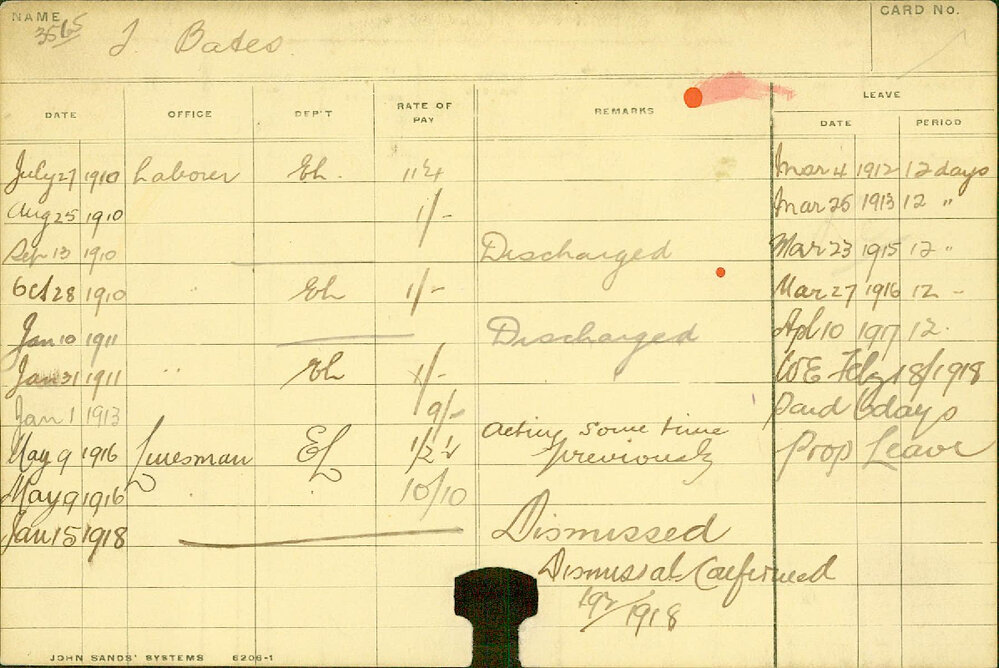 NAME
CARD NO.
3565
J. Bates
DATE OFFICE DEP'T RATE OF PAY REMARKS LEAVE
DATE PERIOD
July 27 1910 Laborer Eh. 11¼ Mar 4 1912 12 days
Aug 25 1910 1/- Mar 25 1913 12 "
Sep 13 1910 Discharged Mar 23 1915 12 "
Oct 28 1910 " Eh 1/- Mar 27 1916 12 -
Jan 10 1911 Discharged Apl 10 1917 12.
Jan 31 1911 " Eh 1/- WE Feby 18/1918
Jan 1 1913 9/- paid 6 days
May 9 1916 Linesman EL 1/2½ Acting some time previously Prop Leave
May 9 1916 10/10
Jan 15 1918 Dismissed
Dismissal Confirmed
1918
JOHN SANDS' SYSTEMS 6206-1